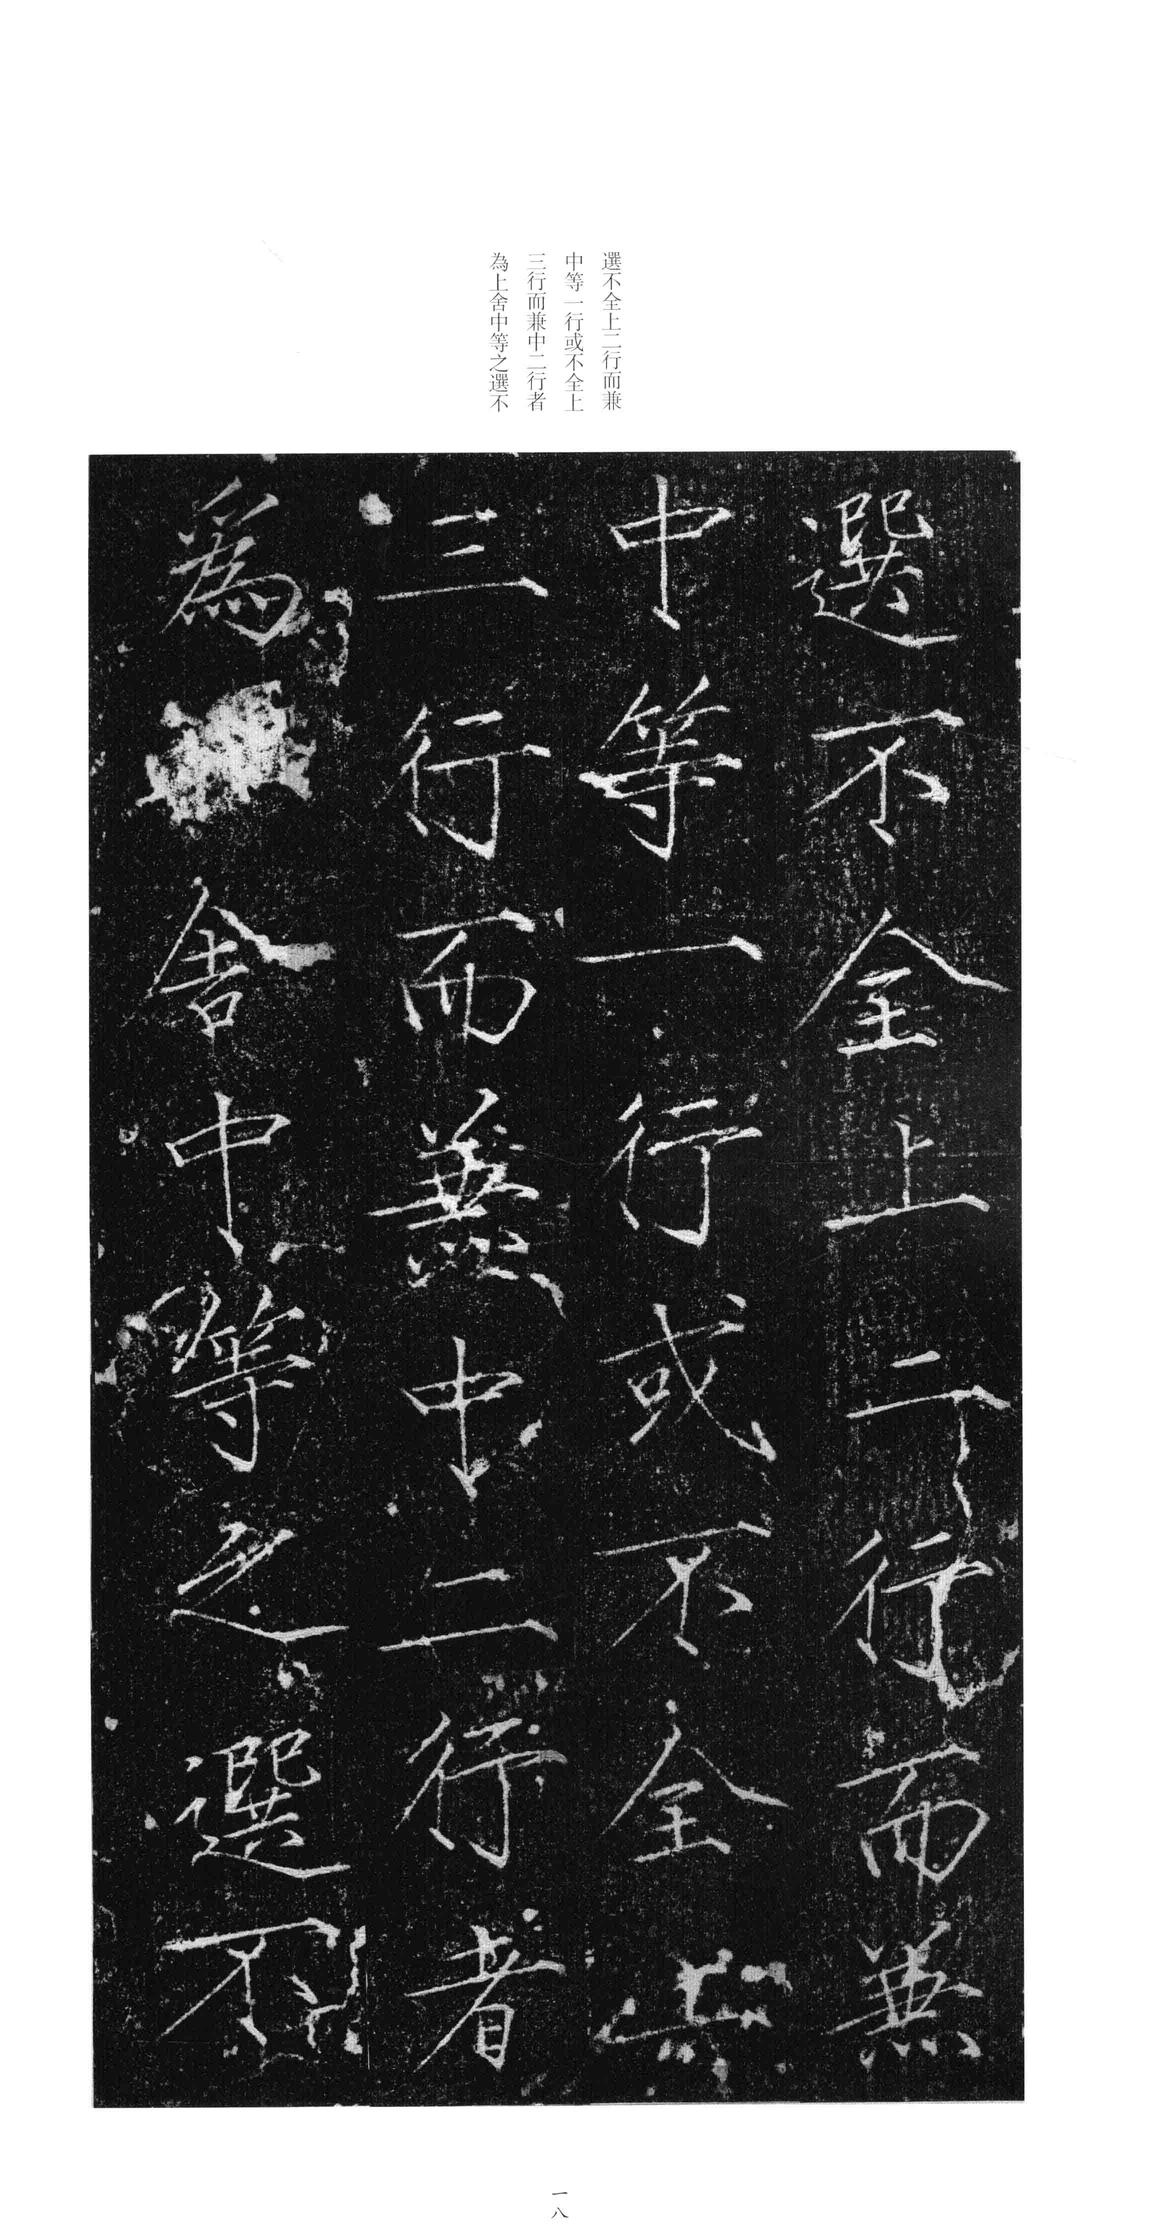 選不全上二行而兼
中等一行或不全上
三行而兼中二行者
為上舍中等之選不
選不全上二行而兼
中等一行或不全
三行而兼中二行者
為舍中等之選不
一八